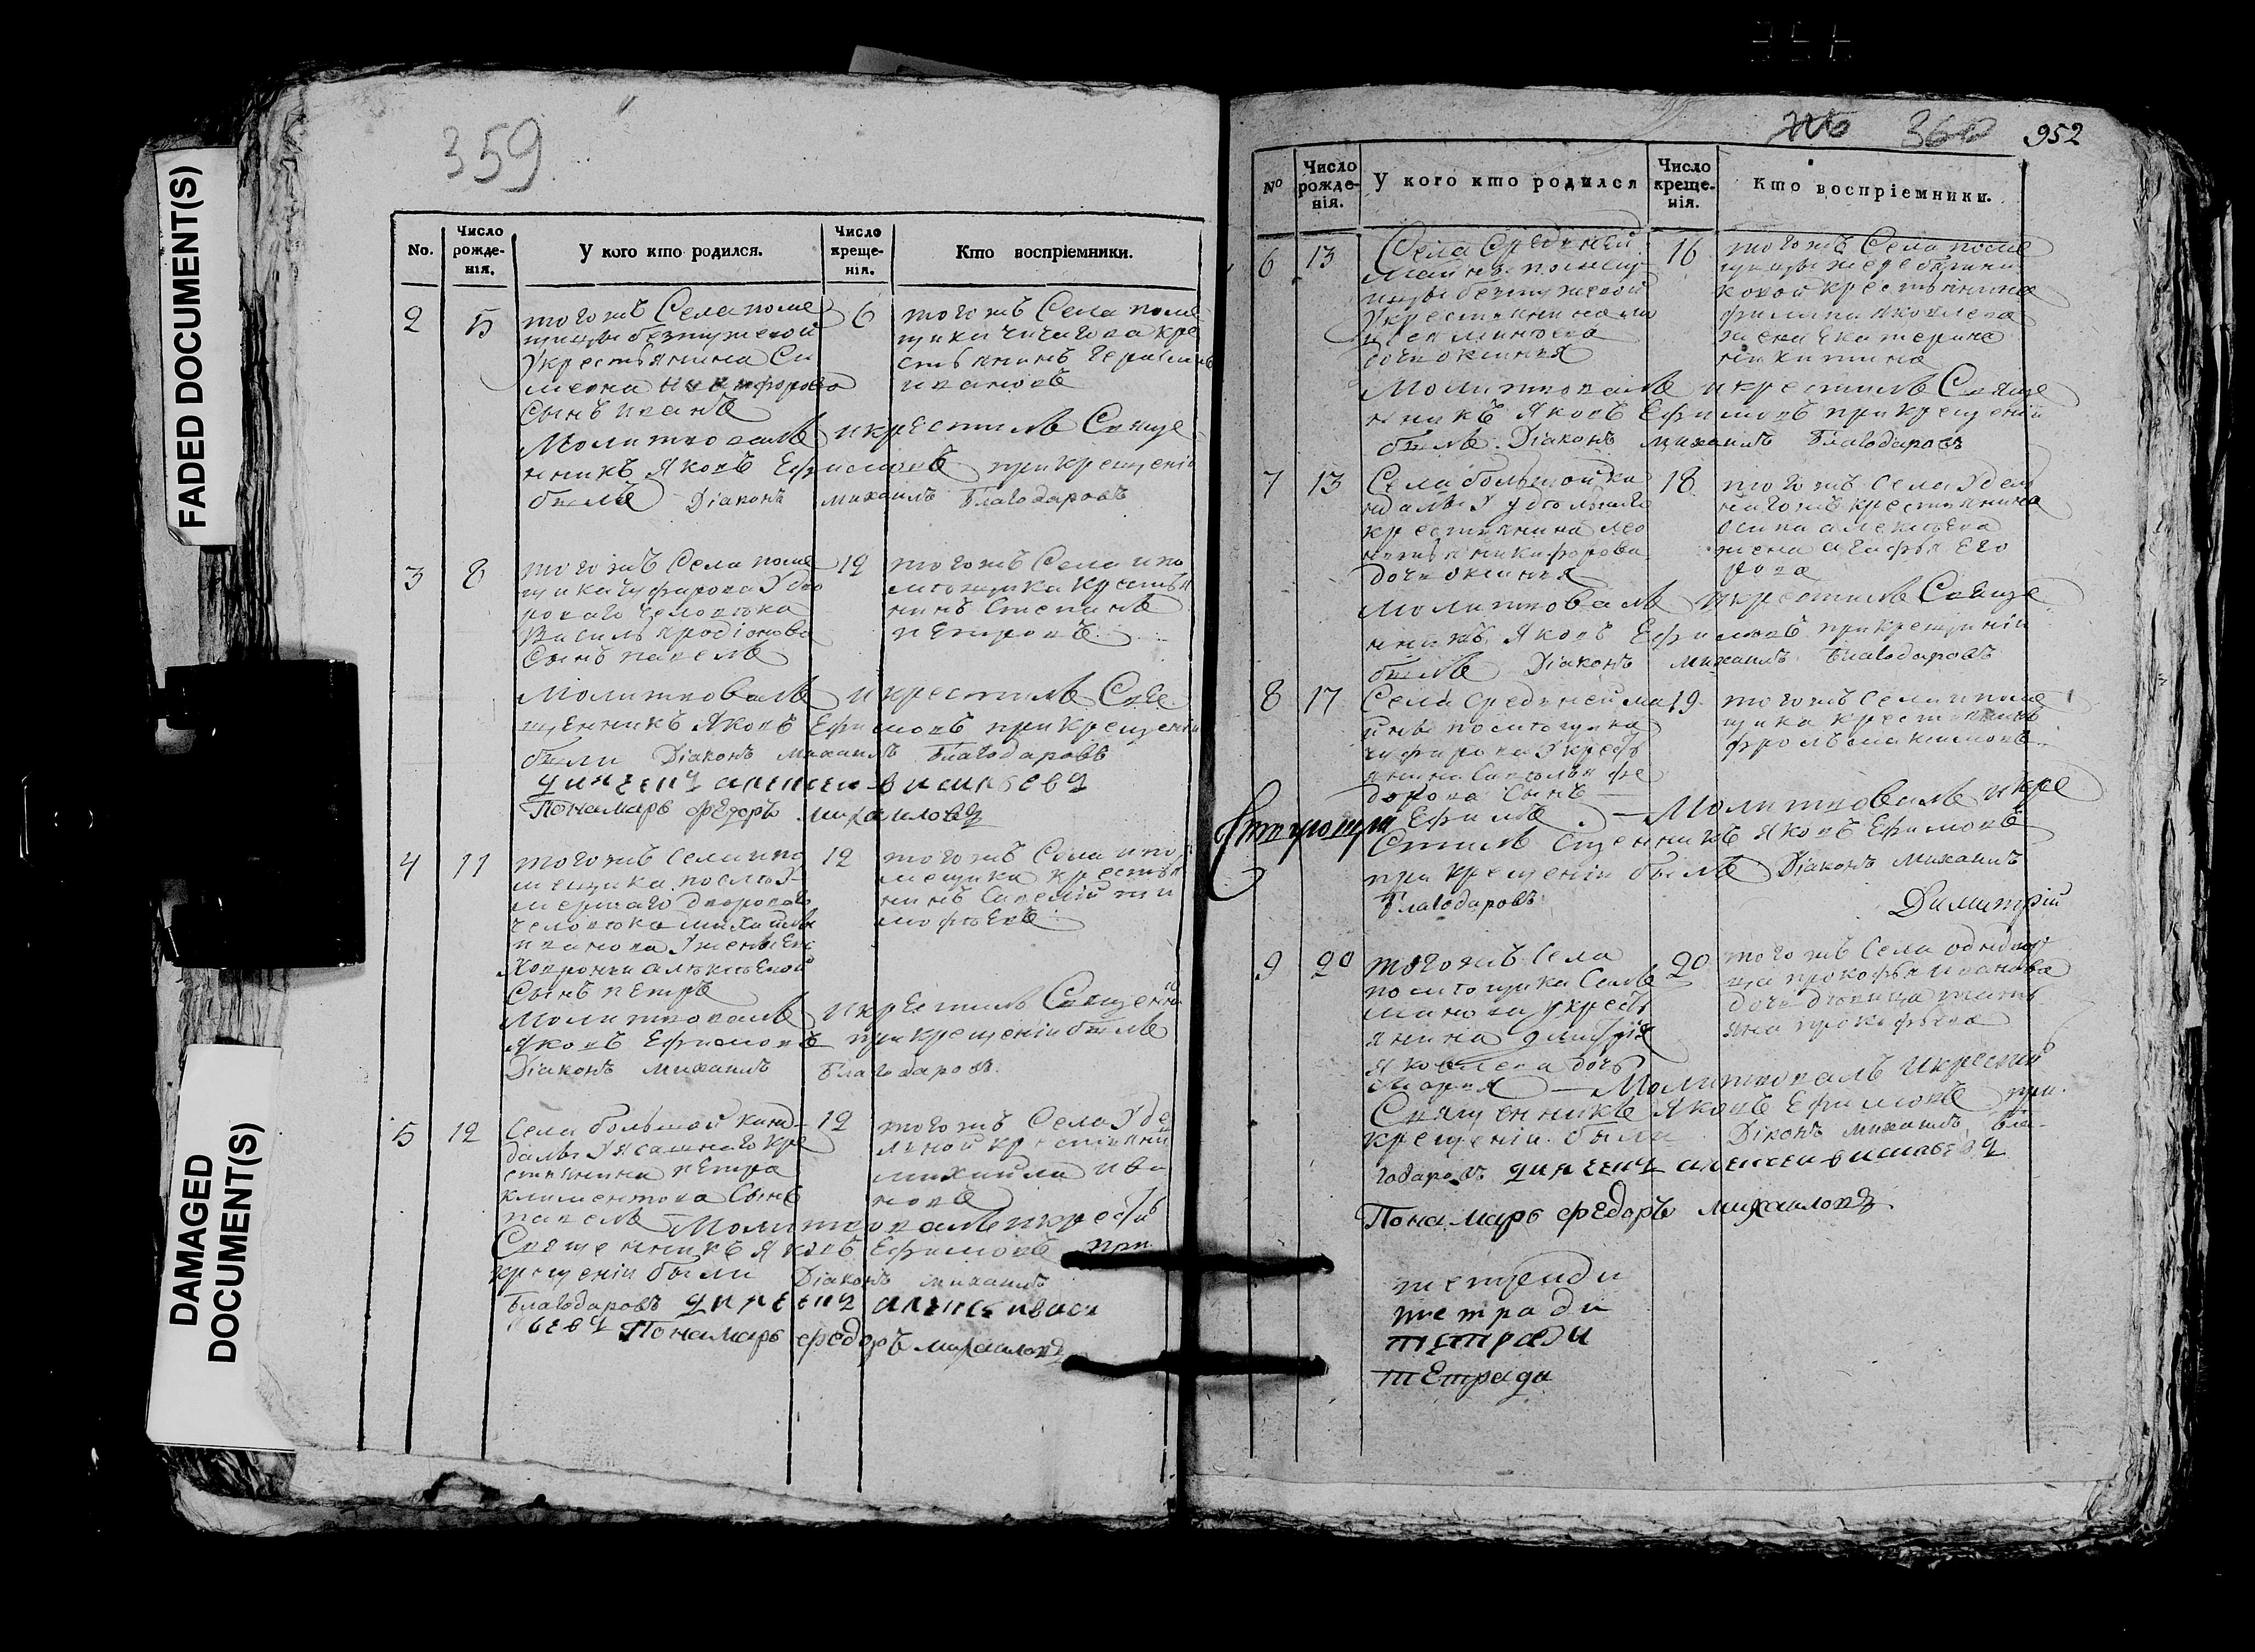 FADED DOCUMENT(S)
DAMAGED
DOCUMENT(S)
359
No.
Число
рожде-
нія.
У кого кто родился.
Число
креще-
нія.
Кто воспріемники.
2
5
тогожъ Села поме
щицы безпужевой
Укрестьянина Си
меона никифорова
Сынъ иванъ
6
тогожъ Села поме
щика чичагова кре
стьянинъ герасимъ
ивановъ
Молитвовалъ икрестилъ Свяще
нникъ Яковъ Ефимовъ прикрещеніи
былъ Діаконъ михаилъ Благодаровъ
3
8
тогожъ Села поме
щика чуфарова Удво
роваго человека
Василья родіонова
Сынъ павелъ
12
тогожъ Села ипо
мещика крестья
нинъ Степанъ
петровъ
Молитвовалъ икрестилъ Свя
щенникъ Яковъ Ефимовъ прикрещеніи
были Діаконъ михаилъ Благодаровъ
дячекъ алексей васильевъ
Понамарь федоръ михаиловъ
4
11
тогожъ Села ипо
мещика послѣ У-
мершаго двороваго
человека михаила
иванова Ужены Ев
Хопроньи алексеевой
Сынъ петръ
12
тогожъ Села ипо
мещика крестья
нинъ Савелій ти
мофеевъ
Молитвовалъ икрестилъ Священни
Яковъ Ефимовъ прикрещеніи былъ
Діаконъ михаилъ Благодаровъ
5
12
Села большой канд-
далы Уясашнаго кре
стьянина петра
климентова Сынъ
павелъ
12
тогожъ Села Уде
льной крестьянинъ
михайла ива
новъ
Молитвовалъ икрести
Священникъ Яковъ Ефимовъ при
крещеніи были Діаконъ михаилъ
Благодаровъ дячекъ алексей васи
льевъ Понамарь федоръ михаиловъ
360 952
No
Число
рожде-
нія.
У кого кто родился
Число
креще-
нія.
Кто воспріемники.
6
13
Села Средьней
майны помещ-
ицы безпужевой
Укрестьянина
дочь оксинья
16
тогожъ Села поме
щицы
крестьянина
филипа яковлева
жена Екатерина
никитина
Молитвовалъ икрестилъ Свяще
нникъ Яковъ Ефимовъ прикрещеніи
былъ Діаконъ михаилъ Благодаровъ
7
13
Села большой ка
ндалы У удельнаго
крестьянина лео
нтья никифорова
дочь оксинья
18
тогожъ Села Удель
наго крестьянина
осипа алексеева
жена агафья Его
рова
Молитвовалъ икрестилъ Свяще
нникъ Яковъ Ефимовъ прикрещеніи
былъ Діаконъ михаилъ Благодаровъ
8
17
Села средьней ма
йны помещика
чуфарова Укресть
янина Савелья фе
дорова Сынъ
Ефимъ
19
тогожъ Села ипоме
щика крестьянинъ
фролъ максимовъ
Молитвовалъ икре
стилъ Сщенникъ Яковъ Ефимовъ
при крещеніи былъ Діаконъ михаилъ
Благодаровъ
Димитрій
9
20
тогожъ Села
помещика Селе
манова Укресть
янина дмитрія
Яковлева дочь
Марья
20
тогожъ Села однодвор
ца прокофья иванова
дочь девица татья
яна прокофьева
Молитвовалъ икрестилъ
Священникъ Яковъ Ефимовъ при
крещеніи были Діаконъ михаилъ Бла-
годаровъ дячекъ алексей васильевъ
Понамарь федоръ михаиловъ
тетради
тетради
тетради
тЕтради